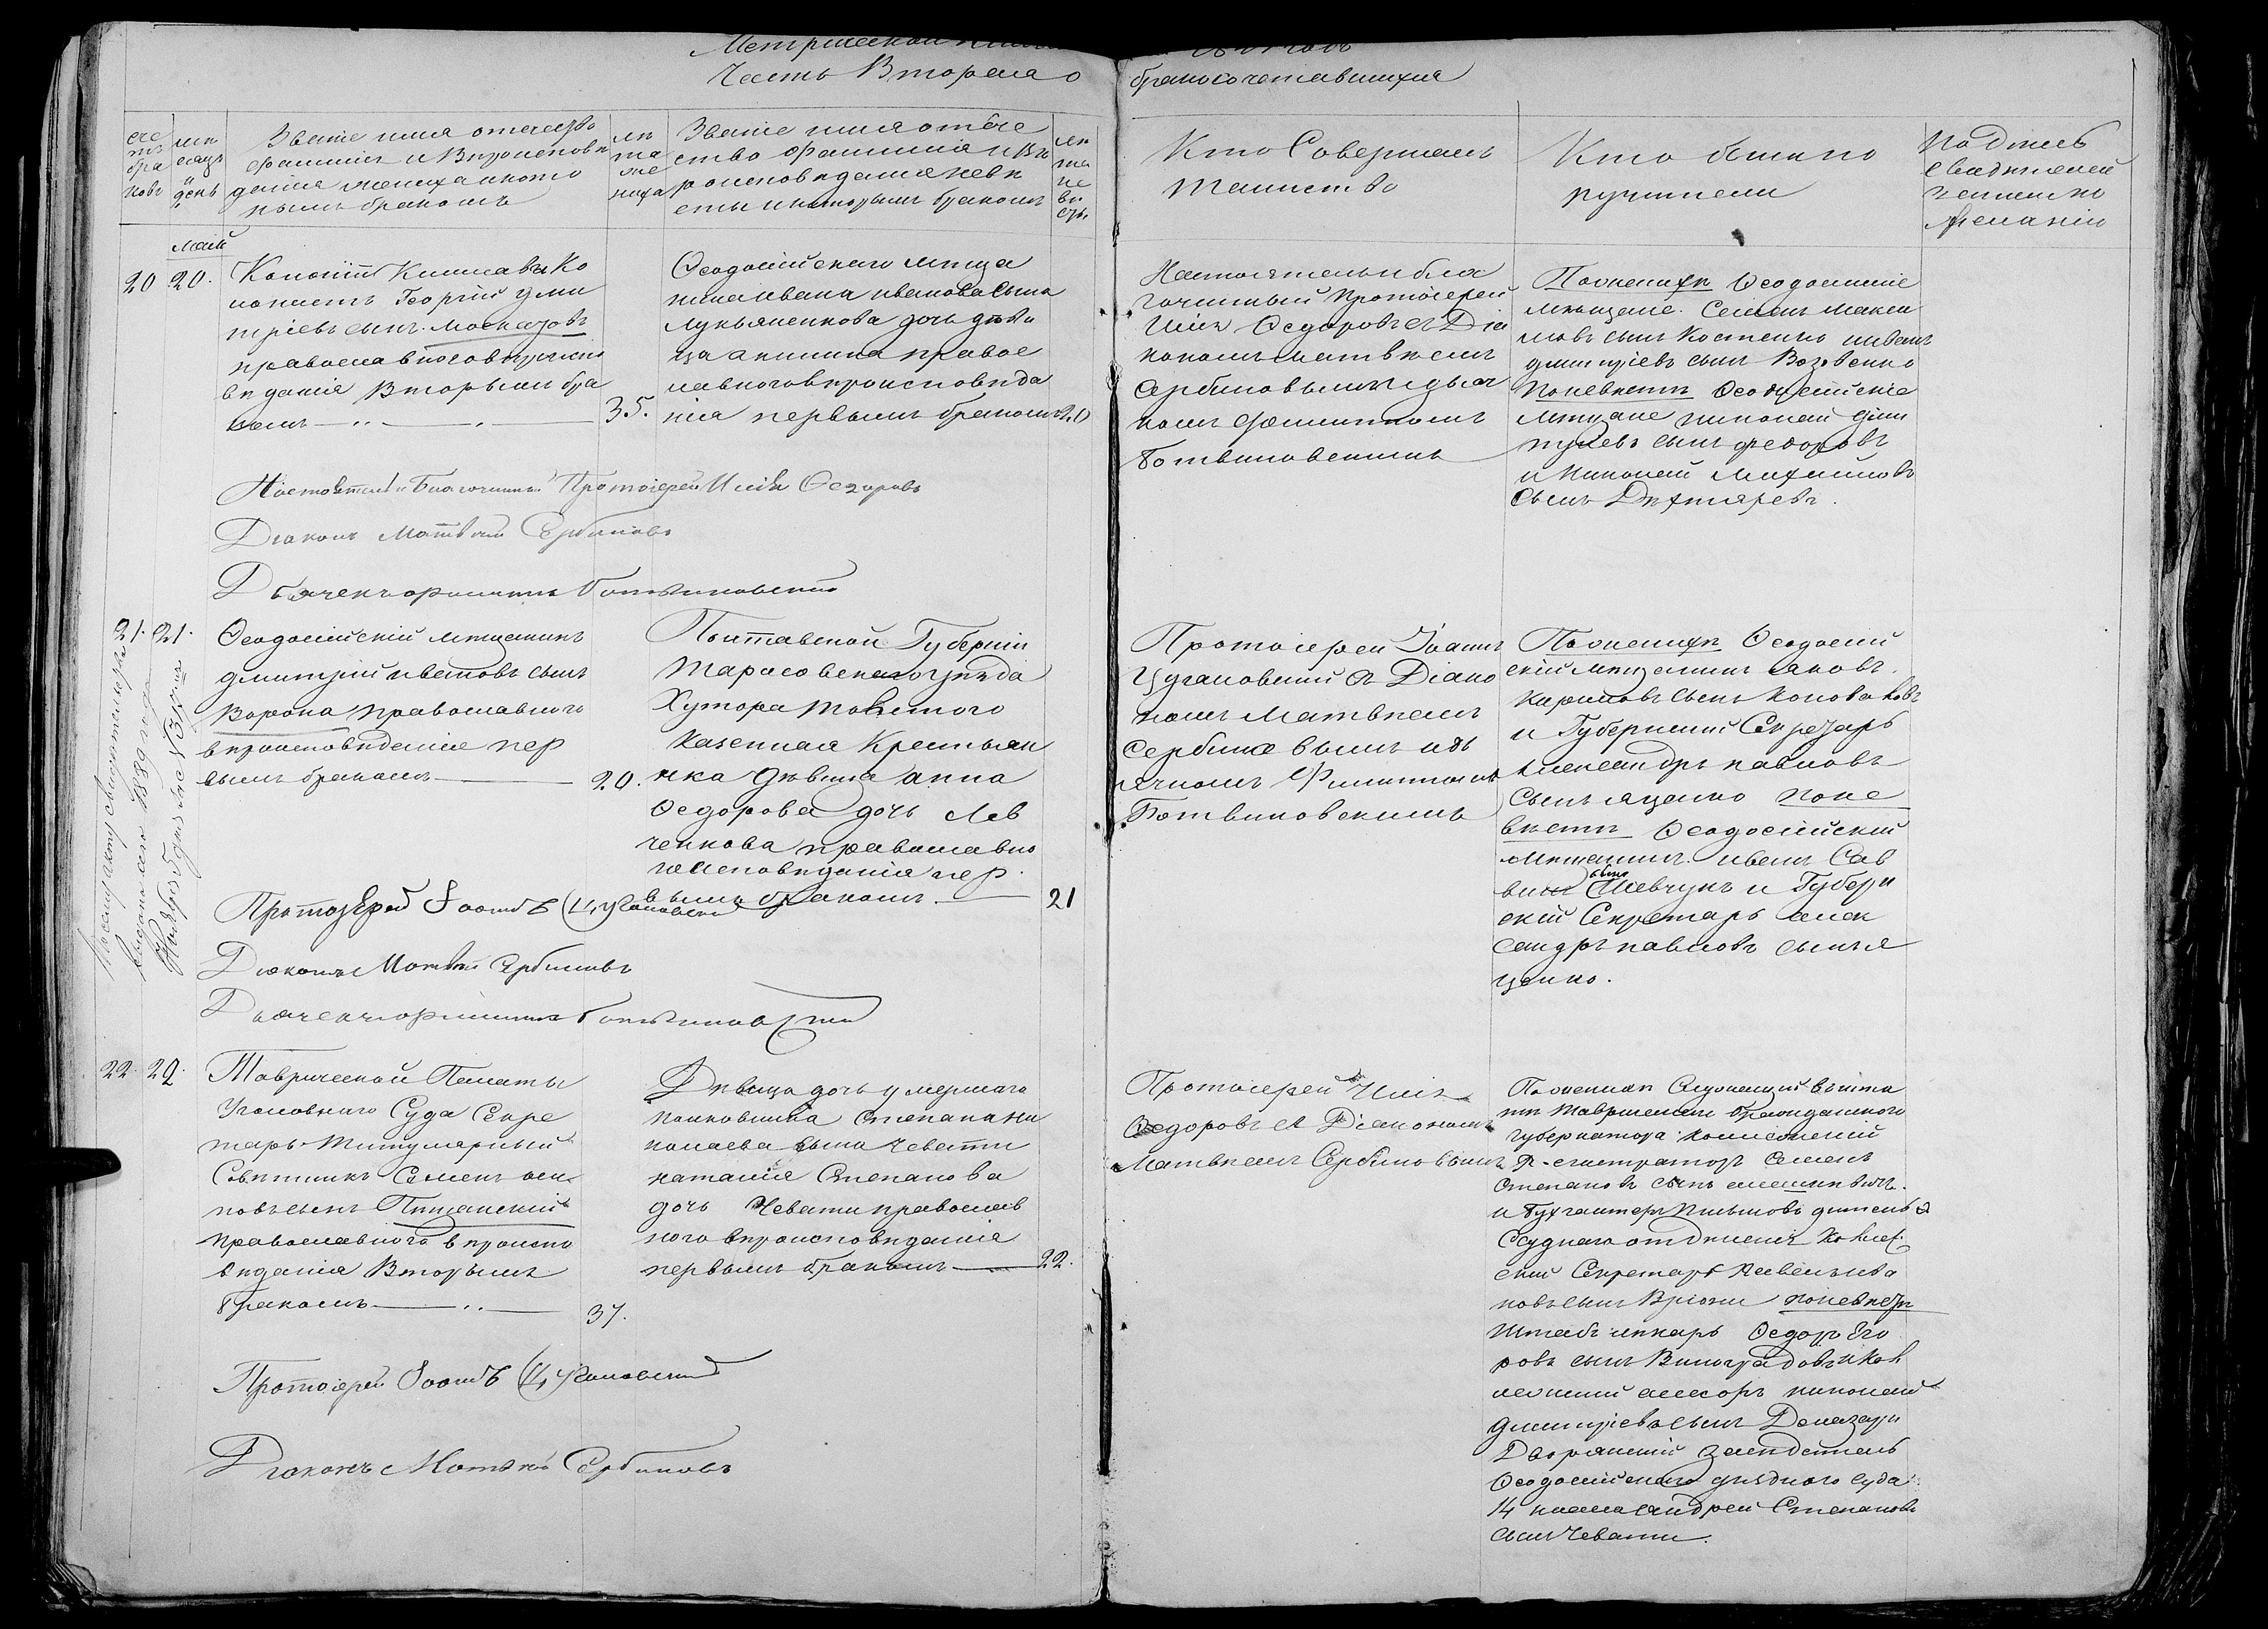 Часть Втораяа о
бракосочетавшихся
сче
тъ
бра
ковъ
мѣ
сяцъ
и
день
Званіе имя отечество
фамилія и Вѣроисповѣ
даніе жениха и кото
рымъ бракомъ
лѣ
та
же
ниха
Званіе имя отече
ство фамилія и Вѣ
роисповѣданіе невѣ
сты и которымъ бракомъ
лѣ
та
не
вѣ
сты
Кто Совершалъ
таинство
Кто были по
ручители
Подпись
свидѣтелей
записи по
желанію
май
20 20.
Георгій Дми
тріевъ сынъ
православнаго вѣроиспо
вѣданія Вторымъ бра
комъ
35.
Ѳеодосійскаго мѣща
нина ивана иванова сына
Лукьяненкова дочь дѣви
ца акилина правос
лавнаго вѣроисповѣда
нія первымъ бракомъ
Настоятель и бла
гочинный Протоіерей
Илія Ѳедоровъ съ Діа
кономъ матвѣемъ
Сербиновымъ и дьяч
комъ филиппомъ
Ботвиновскимъ
По женихѣ Ѳеодосійскіе
мѣщане. Семенъ Макси
мовъ сынъ Костенко и иванъ
дмитріевъ сынъ
По невѣстѣ Ѳеодосійскіе
мѣщане николай Дми
тріевъ сынъ федоровъ
и Николай Михайловъ
Сынъ Дѣхтяревъ.
Настоятель и Благочинный Протоіерей Илія Ѳедоровъ
Діаконъ Матвей Сербиновъ
Дьячекъ филиппъ Ботвиновскій
21. 21.
1889 года
Ѳеодосійскій мѣщанинъ
дмитрій ивановъ сынъ
Ворона православнаго
вѣроисповѣданія пер
вымъ бракомъ
20.
Полтавской Губерніи
уѣзда
Хутора
Казенная Крестьян
ка Дѣвица анна
Ѳедорова дочь Лев
ченкова православно
го исповѣданія пер
вымъ бракомъ.
21
Протоіерей Іоаннъ
Цугановскій съ Діако
номъ Матвѣемъ
Сербиновымъ и дь
ячкомъ Филиппомъ
Ботвиновскимъ
По женихѣ Ѳеодосій
скій мѣщанинъ яковъ
Кириловъ сынъ Коноваловъ
и Губернскій Секретарь
Александръ павловъ
сынъ яценко по не
вѣстѣ Ѳеодосійскій
Мѣщанинъ иванъ Сав
винъ сынъ Шевчукъ и Губерн
скій Секретарь алек
сандръ павловъ сынъ я
ценко.
Протоіерей Іоаннъ Цугановскій
Діаконъ Матвей Сербиновъ
Дьячекъ филиппъ Ботвиновскій
22. 22.
Таврической Палаты
Уголовнаго Суда Секре
тарь Титулярный
Совѣтникъ Семенъ
повъ сынъ
Православнаго вѣроиспо
вѣданія Вторымъ
бракомъ
37.
Дѣвица дочь умершаго
полковника Степана Ни
колаева сына Чевати
наталія Степанова
дочь Чевати православ
наго вѣроисповѣданія
первымъ бракомъ
22.
Протоіерей Илія
Ѳедоровъ съ Діакономъ
Матвѣемъ Сербиновымъ
По женихѣ
Таврическаго Гражданскаго
губернатора
Регистраторъ Семенъ
Степановъ сынъ
и бухгалтеръ
Ссуднаго отдѣленія Коллеж
скій Секретарь
новъ сынъ по невѣстѣ
Штабъ лекарь Ѳедоръ Его
ровъ сынъ Виноградовъ и Кол
лежскій асесоръ николай
дмитріевъ сынъ
Дворянскій засѣдатель
Ѳеодосійскаго уѣзднаго суда
14 класса андрей Степановъ
сынъ Чевати.
Протоіерей Іоаннъ Цугановскій
Діаконъ Матвей Сербиновъ